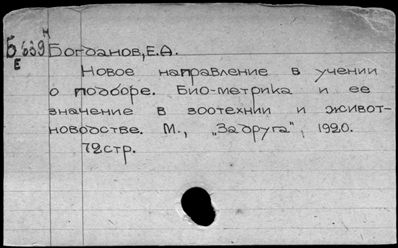 Б 639 н Богданов, Е.А.
Е
Новое направление в учении
о подборе. Био-метрика и ее
значение в зоотехнии и живот-
новодстве. М., „Задруга", 1920.
72стр.